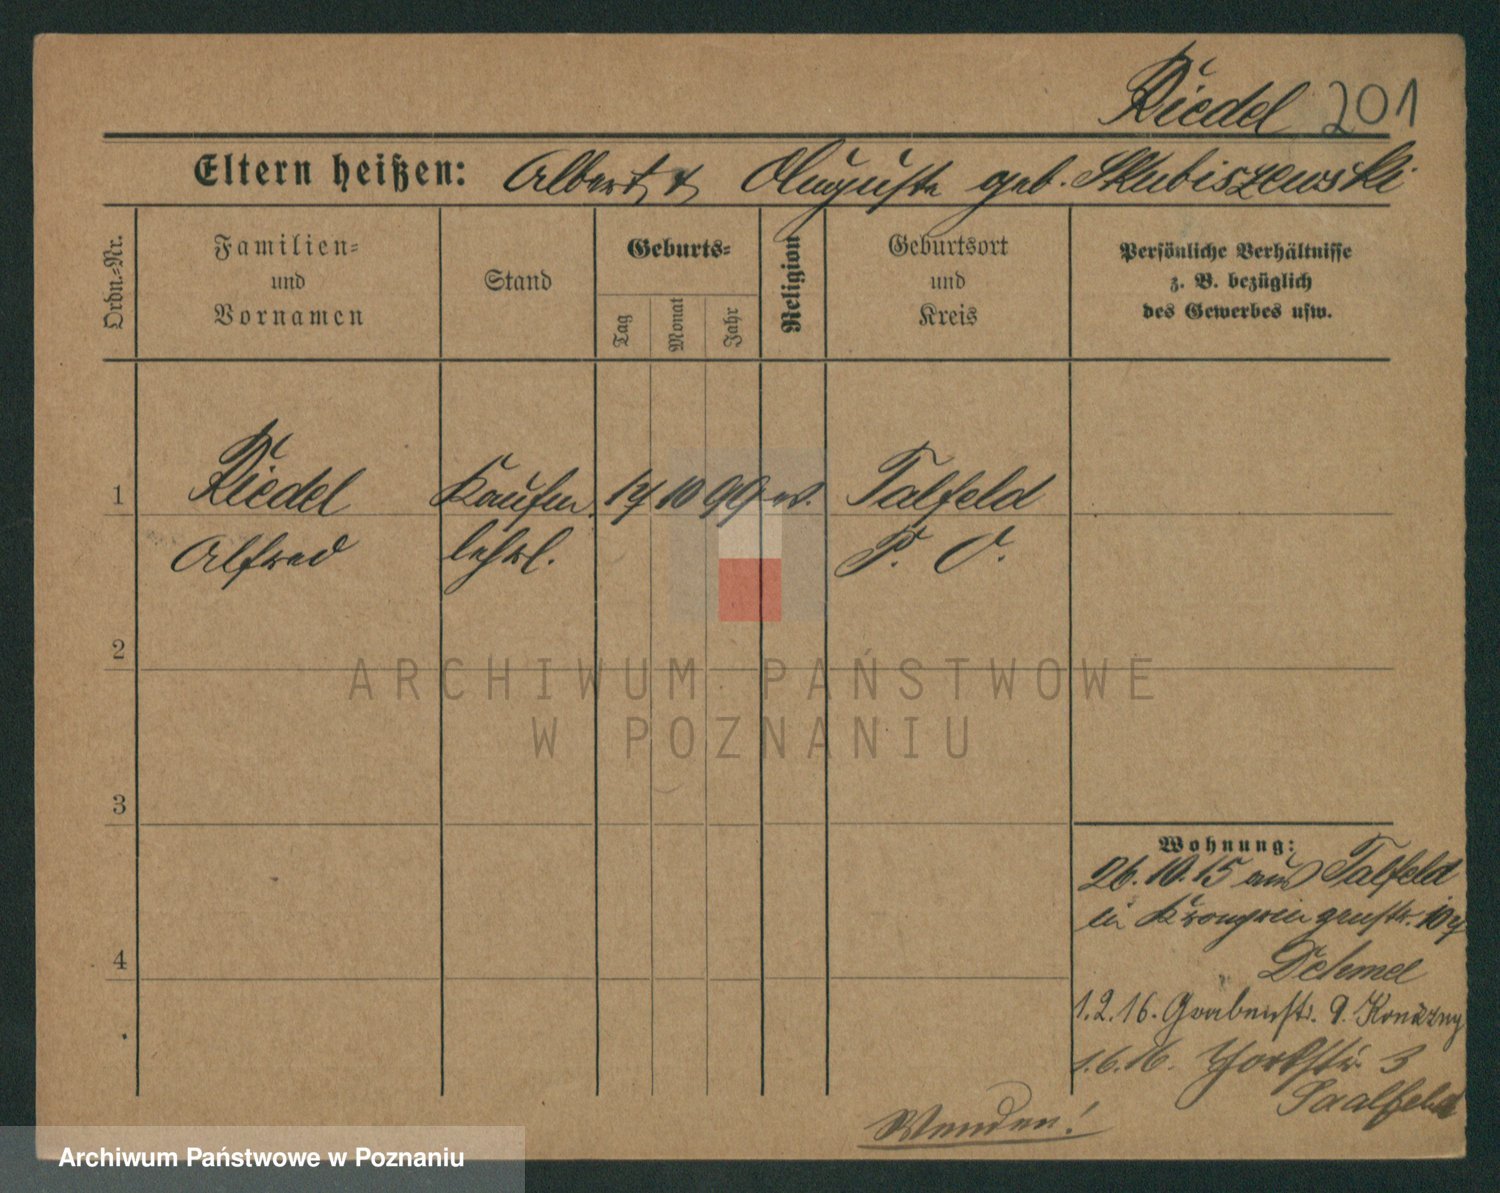 Riedel 201
Eltern heißen: Albert & Auguste geb. Skubiszewski
Ordn.-Nr.
Familien-
und
Vornamen
Stand
Geburts-
Tag
Monat
Jahr
Religion
Geburtsort
und
Kreis
Persönliche Verhältnisse
z. B. bezüglich
des Gewerbes usw.
1
Riedel Kaufm. 10 99 Talfeld
Alfred lehrl. P. O.
2
ARCHIWUM PAŃSTWOWE
W POZNANIU
3
Wohnung:
26.10.15 aus Talfeld
in
4
Dehmel
1.2.16. Grabenstr. 9.
1.6.16. Yorkstr. 3
Saalfeld
Wenden!
Archiwum Państwowe w Poznaniu